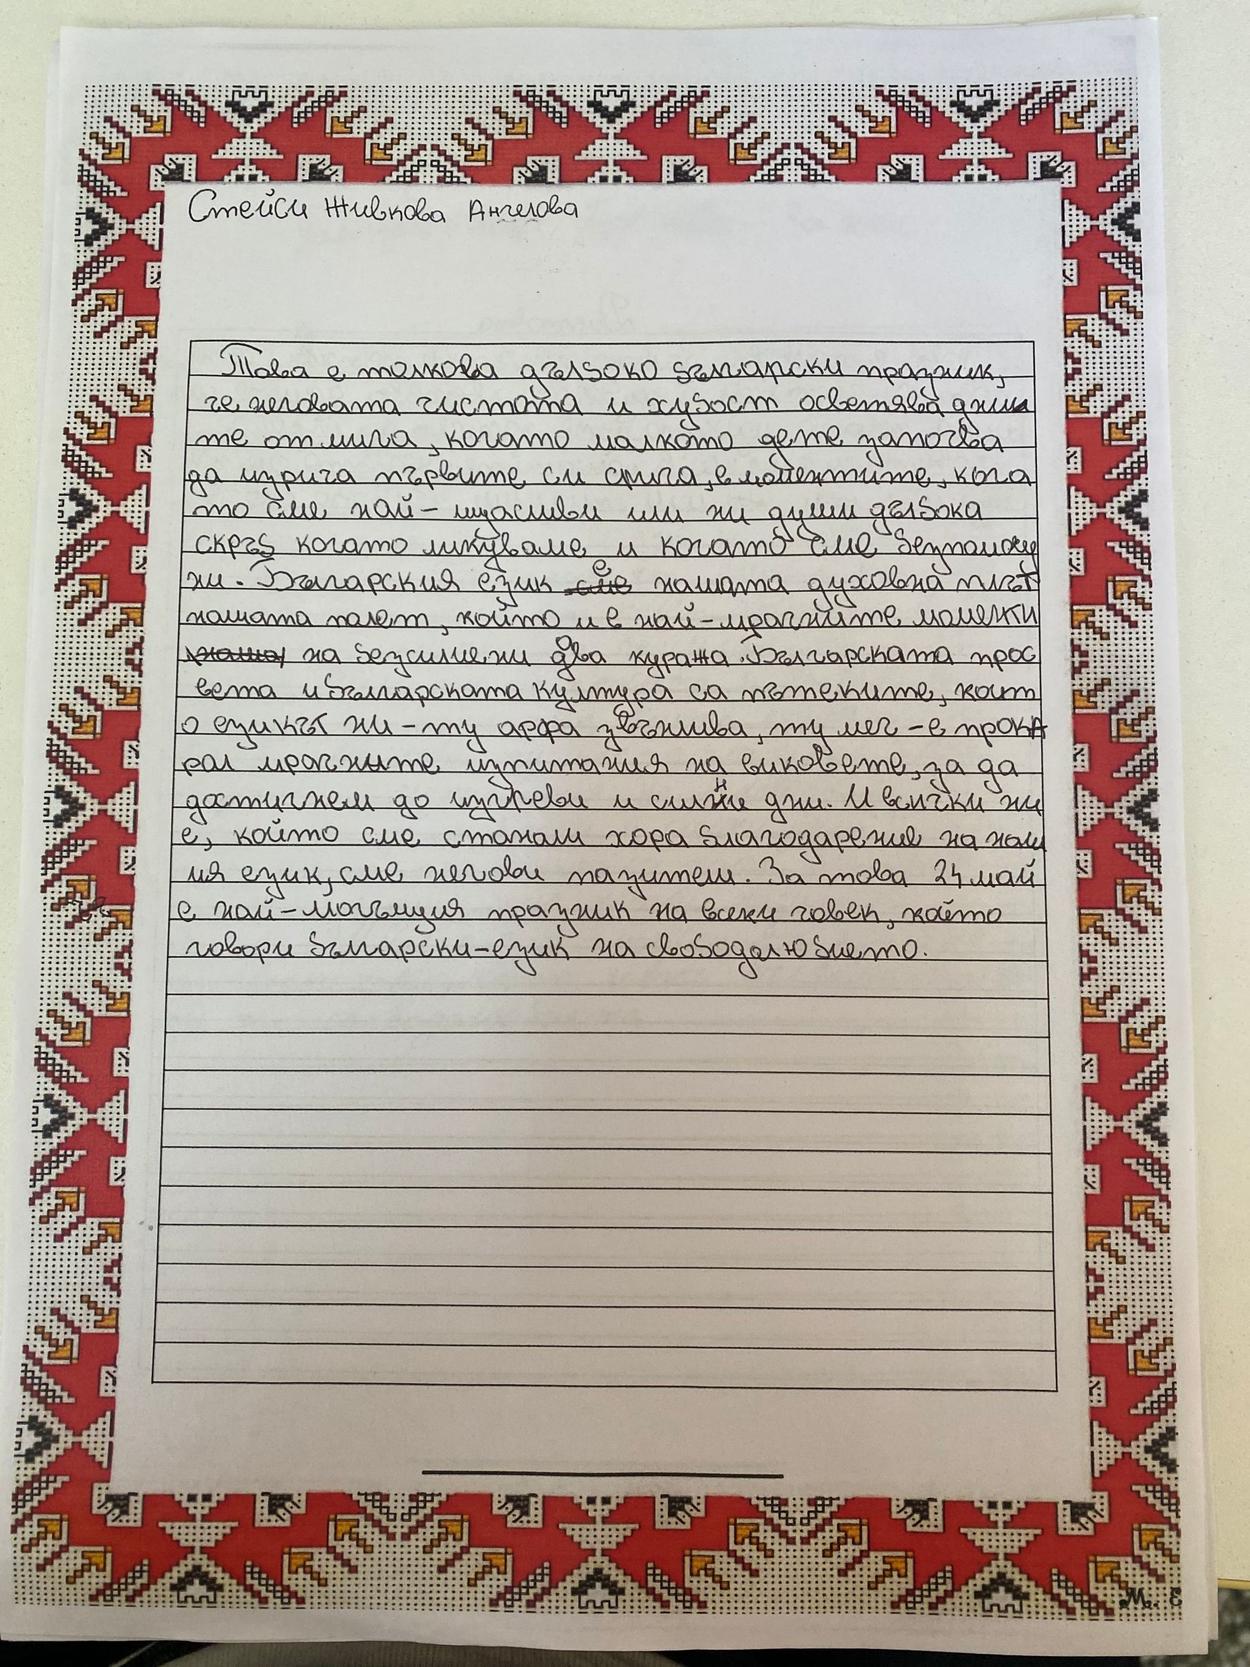 Стейси Живкова Ангелова
Това е толкова дълбоко български празник,
че неговата чистота и хубост осветява дни
те от мига, когато малкото дете започва
да изрича първите си слига, в моментите, кога
то сме най-щасливи или ни души дълбока
скръб когато ликуваме и когато сме безпомощ
ни. Българския език е нашата духовна плът
нашата полет, който и в най-мрачните моменти
на безсилие ни два куража. Българската прос
вета и българската култура са пътеките, коит
о езикът ни-ту арфа звънлива, ту меч-е прока
рал мрачните изпитания на виковете, за да
достигнем до изгреви и силни дни. И всички ни
е, който сме станали хора благодарение на наш
ия език, сме негови пазители. За това 24 май
е най-могъщия празник на всеки човек, който
говори български-език на свободолюбието.
М. Е